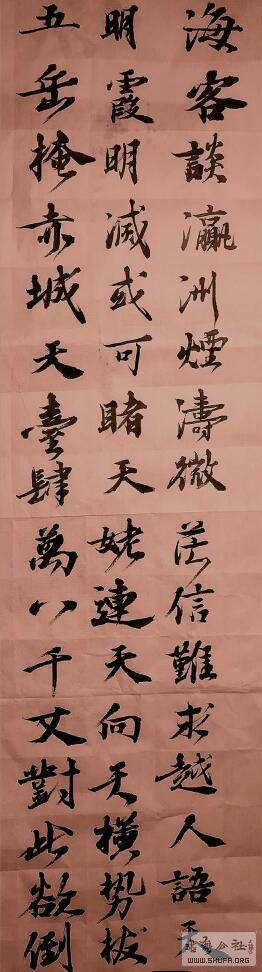 海客談瀛洲煙濤微茫信難求越人語天
明霞明滅或可睹天姥連天向天橫勢拔
五岳掩赤城天臺肆萬八千丈對此欲倒
WWW.SHUFA.ORG